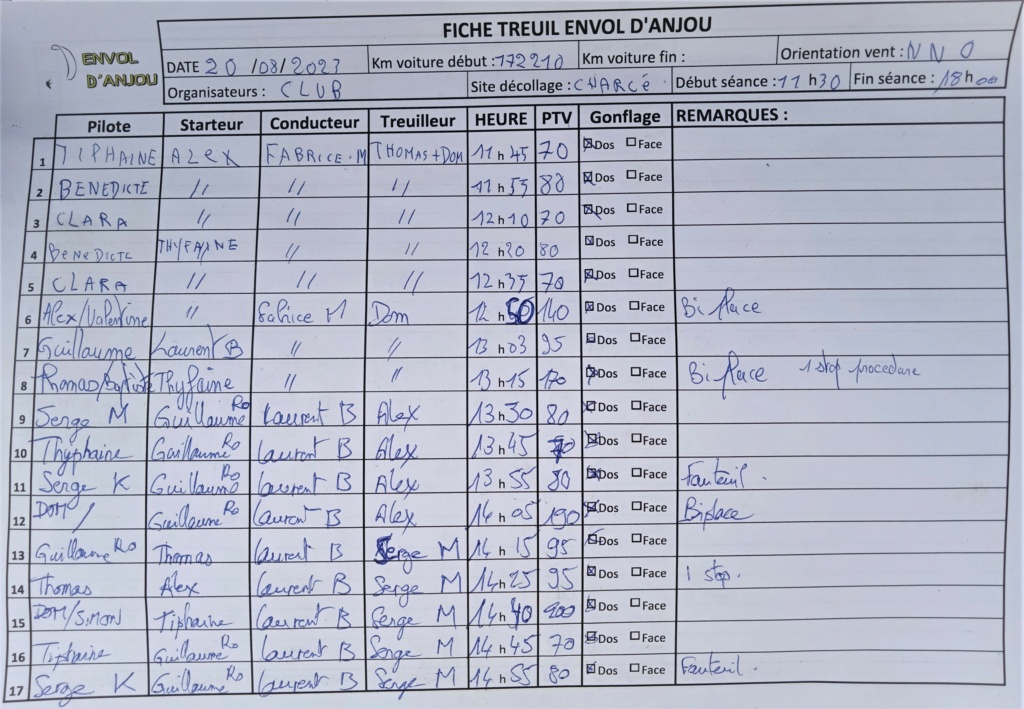 FICHE TREUIL ENVOL D'ANJOU
ENVOL D'ANJOU
DATE 20 /08/2023 Km voiture début : 172210 Km voiture fin : Orientation vent : N N O
Organisateurs : CLUB Site décollage : CHARCÉ Début séance : 11 h30 Fin séance : 18h00
Pilote Starteur Conducteur Treuilleur HEURE PTV Gonflage REMARQUES :
1 TIPHAINE ALEX FABRICE.M THOMAS+DOM 11 h 45 70 ☒Dos ☐Face
2 BENEDICTE // // // 11 h 55 80 ☒Dos ☐Face
3 CLARA // // // 12 h 10 70 ☒Dos ☐Face
4 BENEDICTE THYFAINE // // 12 h 20 80 ☒Dos ☐Face
5 CLARA // // // 12 h 35 70 ☒Dos ☐Face
6 Alex/Valentine // Fabrice M Dom 12 h 50 140 ☒Dos ☐Face Bi place
7 Guillaume Laurent B // // 13 h 03 95 ☒Dos ☐Face
8 Thomas/Baptiste Thyfaine // // 13 h 15 170 ☒Dos ☐Face Bi place 1 stop procedure
9 Serge M Guillaume Ro Laurent B Alex 13 h 30 80 ☒Dos ☐Face
10 Thyphaine Guillaume Ro Laurent B Alex 13 h 45 70 ☒Dos ☐Face
11 Serge K Guillaume Ro Laurent B Alex 13 h 55 80 ☒Dos ☐Face Fauteuil.
12 DOM / Guillaume Ro Laurent B Alex 14 h 05 190 ☒Dos ☐Face Biplace
13 Guillaume Ro Thomas Laurent B Serge M 14 h 15 95 ☒Dos ☐Face
14 Thomas Alex Laurent B Serge M 14 h 25 95 ☒Dos ☐Face 1 stop.
15 DOM/SIMON Tiphaine Laurent B Serge M 14 h 40 200 ☒Dos ☐Face
16 Tiphaine Guillaume Ro Laurent B Serge M 14 h 45 70 ☒Dos ☐Face
17 Serge K Guillaume Ro Laurent B Serge M 14 h 55 80 ☒Dos ☐Face Fauteuil.